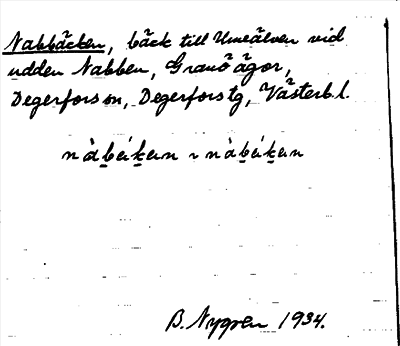 Nabbäcken, bäck till Umeälven vid
udden Nabben, Granö ägor,
Degerfors sn, Degerfors tg, Västerb.l.
B. Nygren 1934.